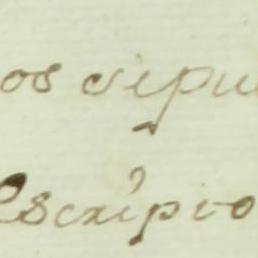 os sepu
Escripio